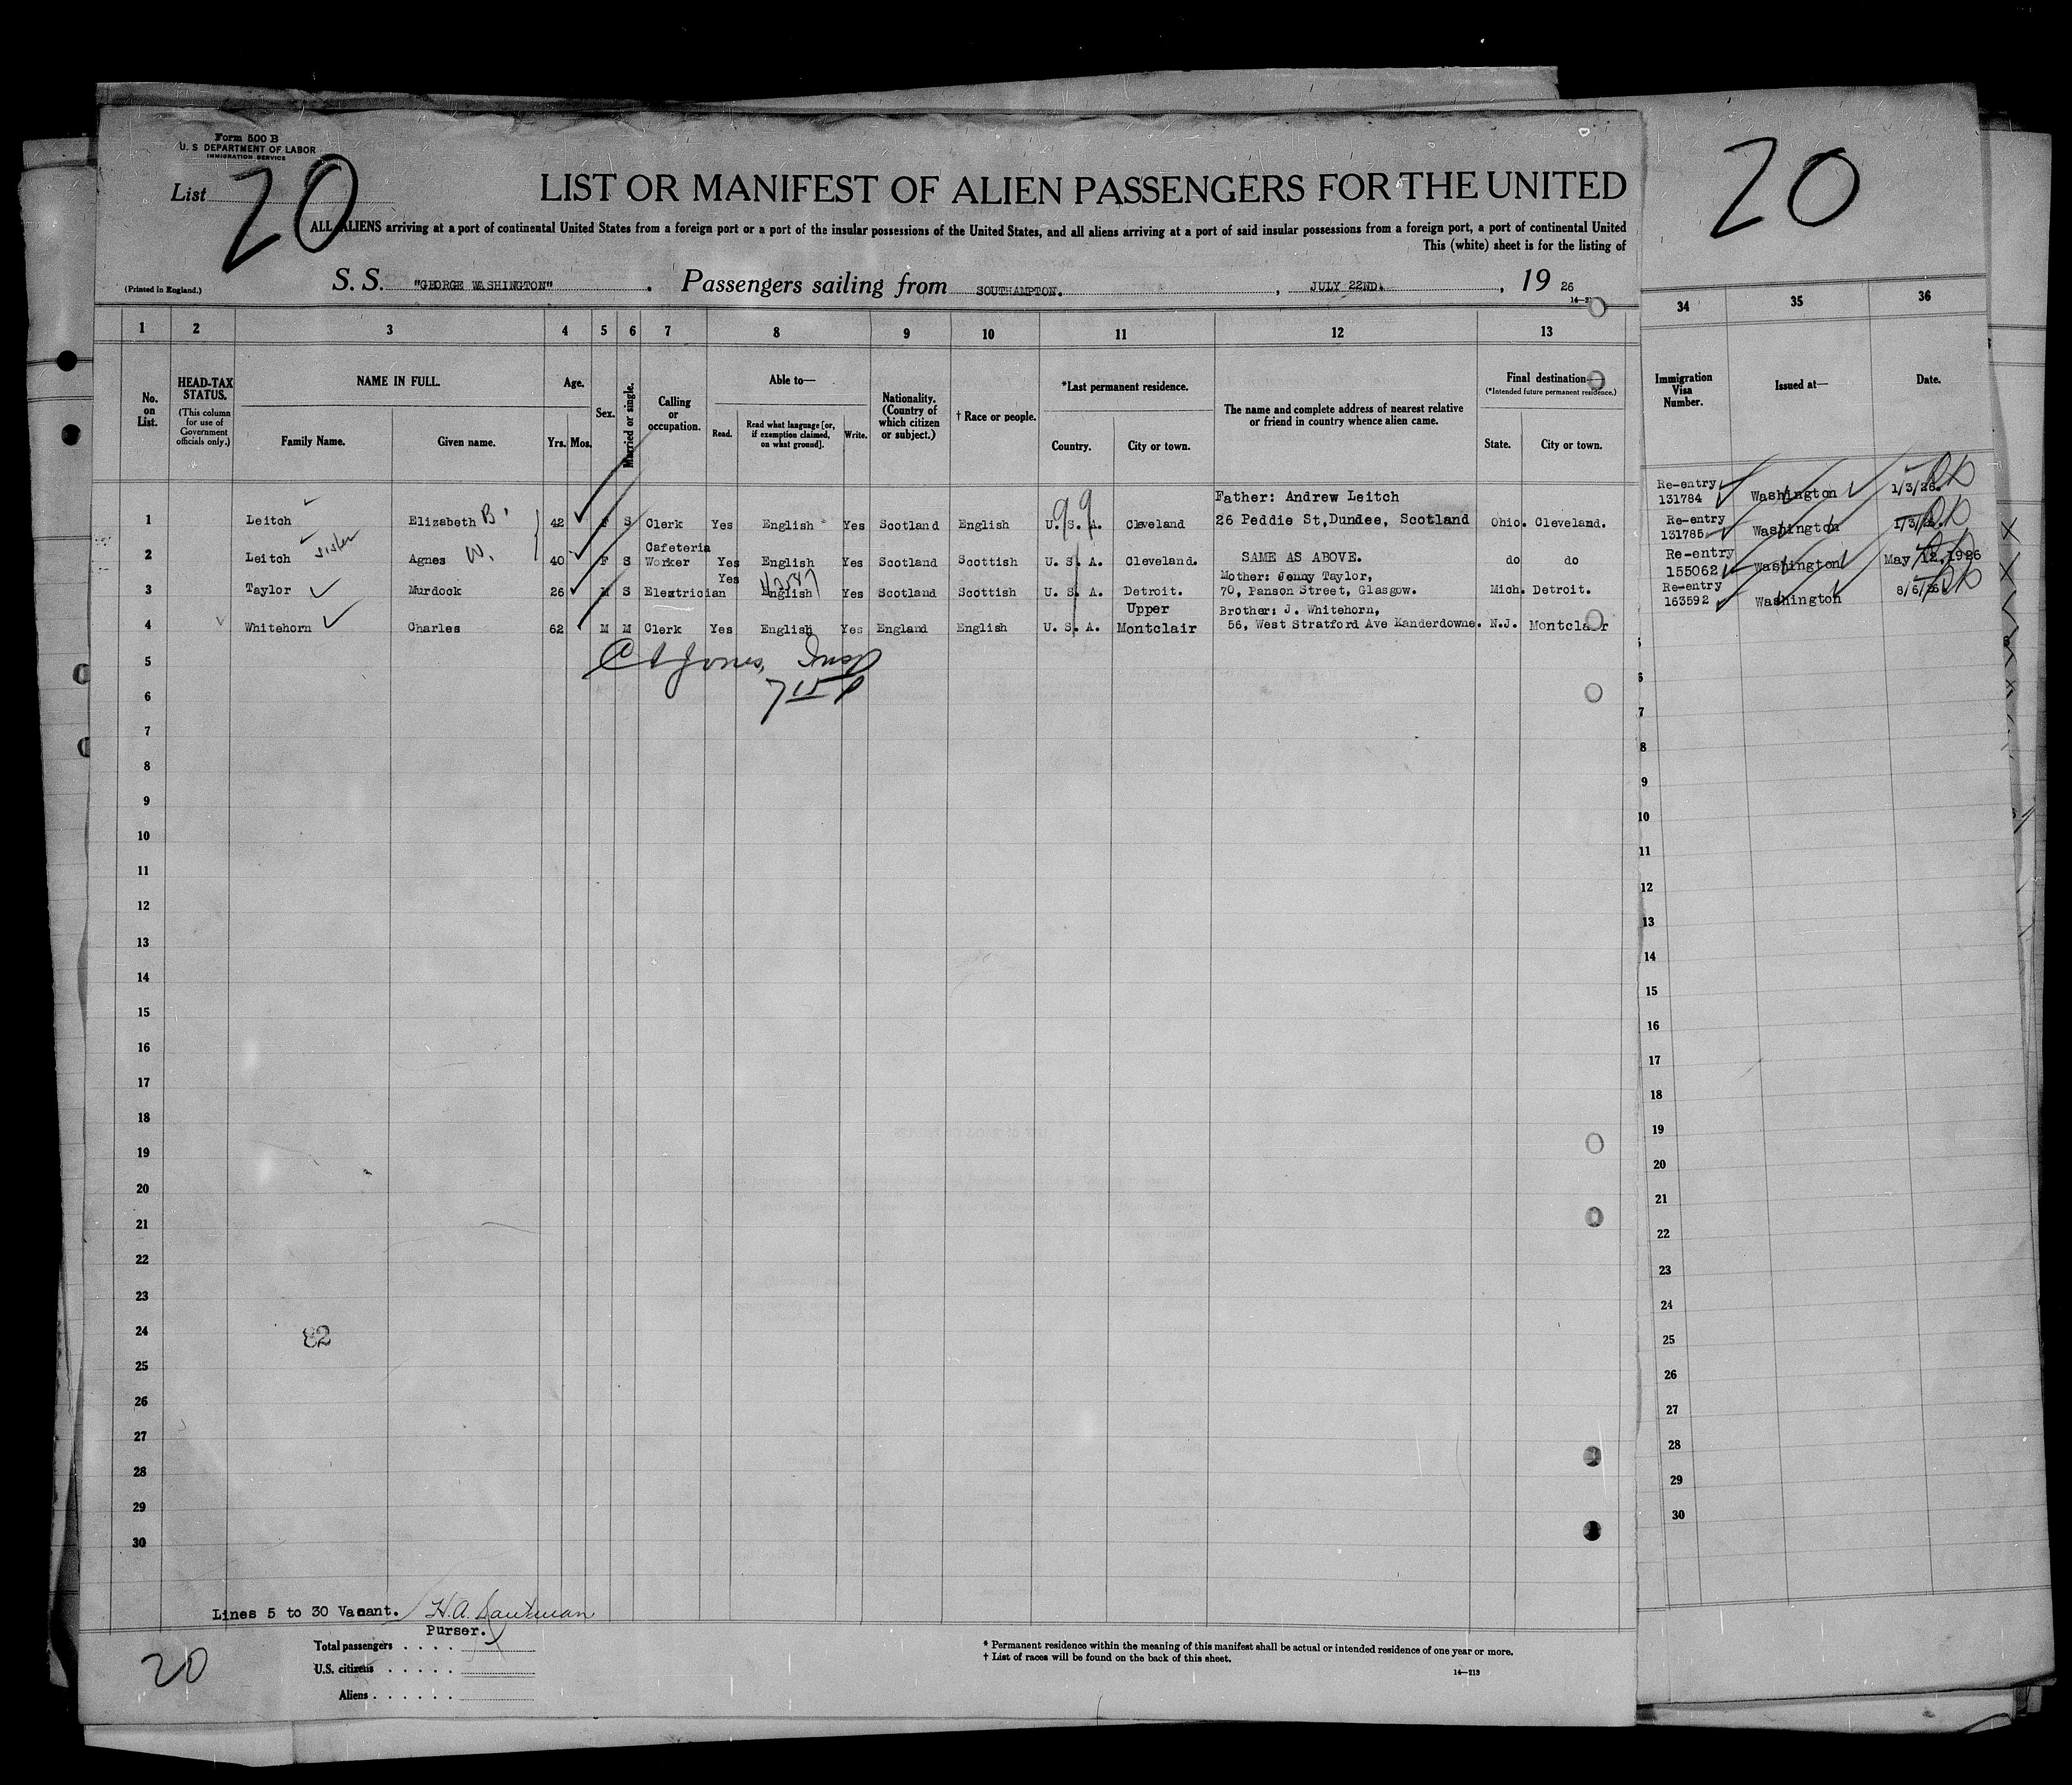 Form 500 B
U. S DEPARTMENT OF LABOR
IMMIGRATION SERVICE
List 20
LIST OR MANIFEST OF ALIEN PASSENGERS FOR THE UNITED
ALL ALIENS arriving at a port of continental United States from a foreign port or a port of the insular possessions of the United States, and all aliens arriving at a port of said insular possessions from a foreign port, a port of continental United
This (white) sheet is for the listing of
(Printed in England.)
S. S. "GEORGE WASHINGTON". Passengers sailing from SOUTHAMPTON. , JULY 22ND. , 19 26
20
1 2 3 4 5 6 7 8 9 10 11 12 13
34 35 36
No. on List.
HEAD-TAX STATUS.
(This column for use of Government officials only.)
NAME IN FULL.
Family Name. Given name.
Age.
Yrs. Mos.
Sex.
Married or single.
Calling or occupation.
Able to—
Read. Read what language [or, if exemption claimed, on what ground]. Write.
Nationality. (Country of which citizen or subject.)
† Race or people.
*Last permanent residence.
Country. City or town.
The name and complete address of nearest relative or friend in country whence alien came.
Final destination
(*Intended future permanent residence.)
State. City or town.
Immigration Visa Number.
Issued at—
Date.
Father: Andrew Leitch
1 Leitch Elizabeth B. 42 F S Clerk Yes English Yes Scotland English U. S. A. Cleveland 26 Peddie St, Dundee, Scotland Ohio. Cleveland.
99
sister
Cafeteria
2 Leitch Agnes W. 40 F S Worker Yes English Yes Scotland Scottish U. S. A. Cleveland. SAME AS ABOVE. do do
Yes Mother: Jenny Taylor,
3 Taylor Murdock 26 M S Elestrician English Yes Scotland Scottish U. S. A. Detroit. 70, Panson Street, Glasgow. Mich. Detroit.
Upper Brother: J. Whitehorn,
4 Whitehorn Charles 62 M M Clerk Yes English Yes England English U. S. A. Montclair 56, West Stratford Ave Kanderdowne. N.J. Montclair
Re-entry
131784 Washington 1/3/26.
Re-entry
131785 Washington
Re-entry
155062 Washington May 12, 1926
Re-entry
163592 Washington 8/6/26
5
6
7
8
9
10
11
12
13
14
15
16
17
18
19
20
21
22
23
24
25
26
27
28
29
30
6
7
8
9
10
11
12
13
14
15
16
17
18
19
20
21
22
23
24
25
26
27
28
29
30
82
Lines 5 to 30 Vacant.
Purser.
20
Total passengers
U.S. citizens
Aliens
* Permanent residence within the meaning of this manifest shall be actual or intended residence of one year or more.
† List of races will be found on the back of this sheet.
14—213